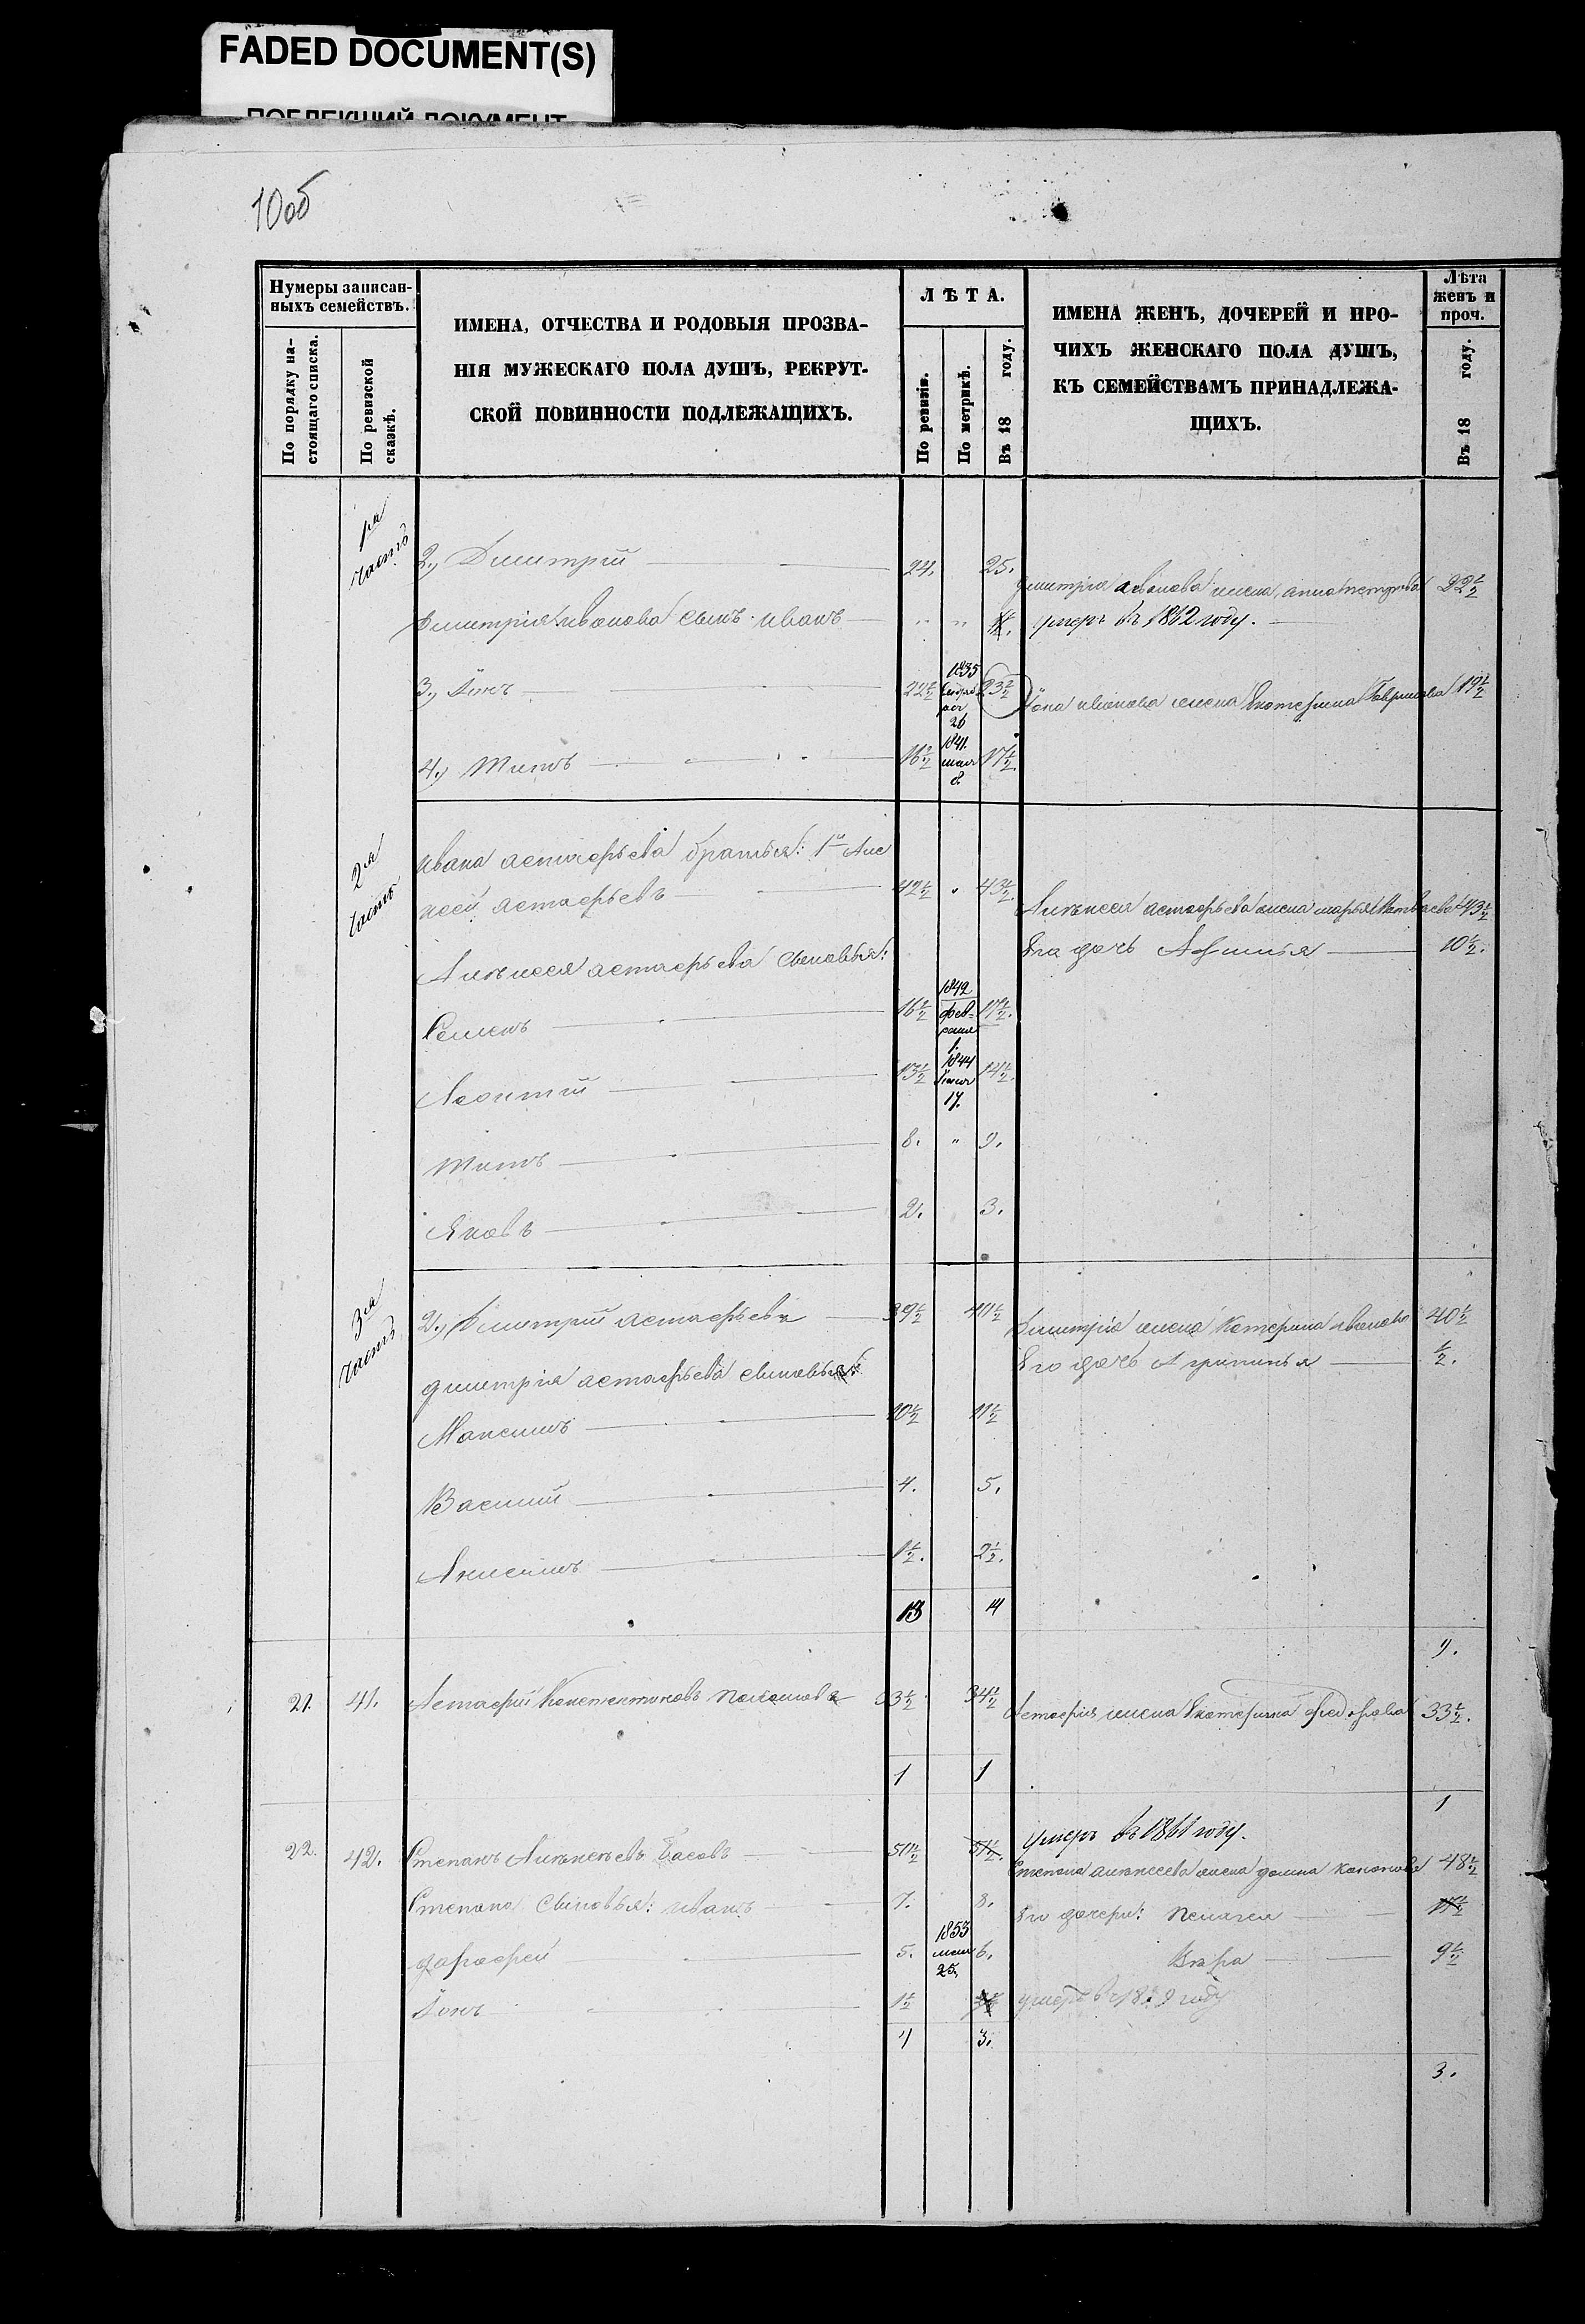 FADED DOCUMENT(S)
ПОБЛЕКШИЙ ДОКУМЕНТ
10об
Нумеры записан-
ныхъ семействъ.
По порядку на-
стоящаго списка.
По ревизской
сказкѣ.
ИМЕНА, ОТЧЕСТВА И РОДОВЫЯ ПРОЗВА-
НІЯ МУЖЕСКАГО ПОЛА ДУШЪ, РЕКРУТ-
СКОЙ ПОВИННОСТИ ПОДЛЕЖАЩИХЪ.
ЛѢТА.
По ревизіи.
По метрикѣ.
Въ 18 году.
ИМЕНА ЖЕНЪ, ДОЧЕРЕЙ И ПРО-
ЧИХЪ ЖЕНСКАГО ПОЛА ДУШЪ,
КЪ СЕМЕЙСТВАМЪ ПРИНАДЛЕЖА-
ЩИХЪ.
Лѣта
женъ и
проч.
Въ 18 году.
1я часть
2., Дмитрій 24. 25.
Дмитрія иванова жена, анна петрова 22½
Дмитрія иванова сынъ иванъ " " умеръ въ 1862 году.
3., Іонъ 22½ 1835 26 23½ Іона иванова жена Екатерина Гаврилова 19½
4., Титъ 16½ 1841. мая 8. 17½.
2я часть
ивана астафьева братья: 1й Але
ксей астафьевъ 42½ " 43½.
Алексея астафьева жена марья Матвѣева 43½
Его дочь Афимья 10½.
Алексея астафьева сыновья:
Семенъ 16½ 1842 фев-раля 1. 17½.
Леонтій 13½ 1844 17. 14½.
Титъ 8. " 9.
Яковъ 2. 3.
3я часть
2., Дмитрій астафьевъ 39½ 40½ Дмитрія жена Катерина иванова 40½
Его дочь Агрипинья ½.
Дмитрія астафьева сыновья:
Максимъ 10½ 11½
Василій 4. 5.
Анисимъ 1½. 2½.
13 14
9.
21. 41. Астафій Константиновъ 33½ 34½ Астафія жена Екатерина федорова 33½.
1 1
1
22. 42. Степанъ Алексѣевъ Басовъ 50½ 51½. умеръ въ 1861 году.
Степана алексеева жена домна 48½
Степана сыновья: иванъ 7. 8. Его дочери: Пелагея 17½
дарофей 5. 1853 мая 25. 6. Вѣра 9½
Іонъ 1½ умеръ въ году
4 3.
3.